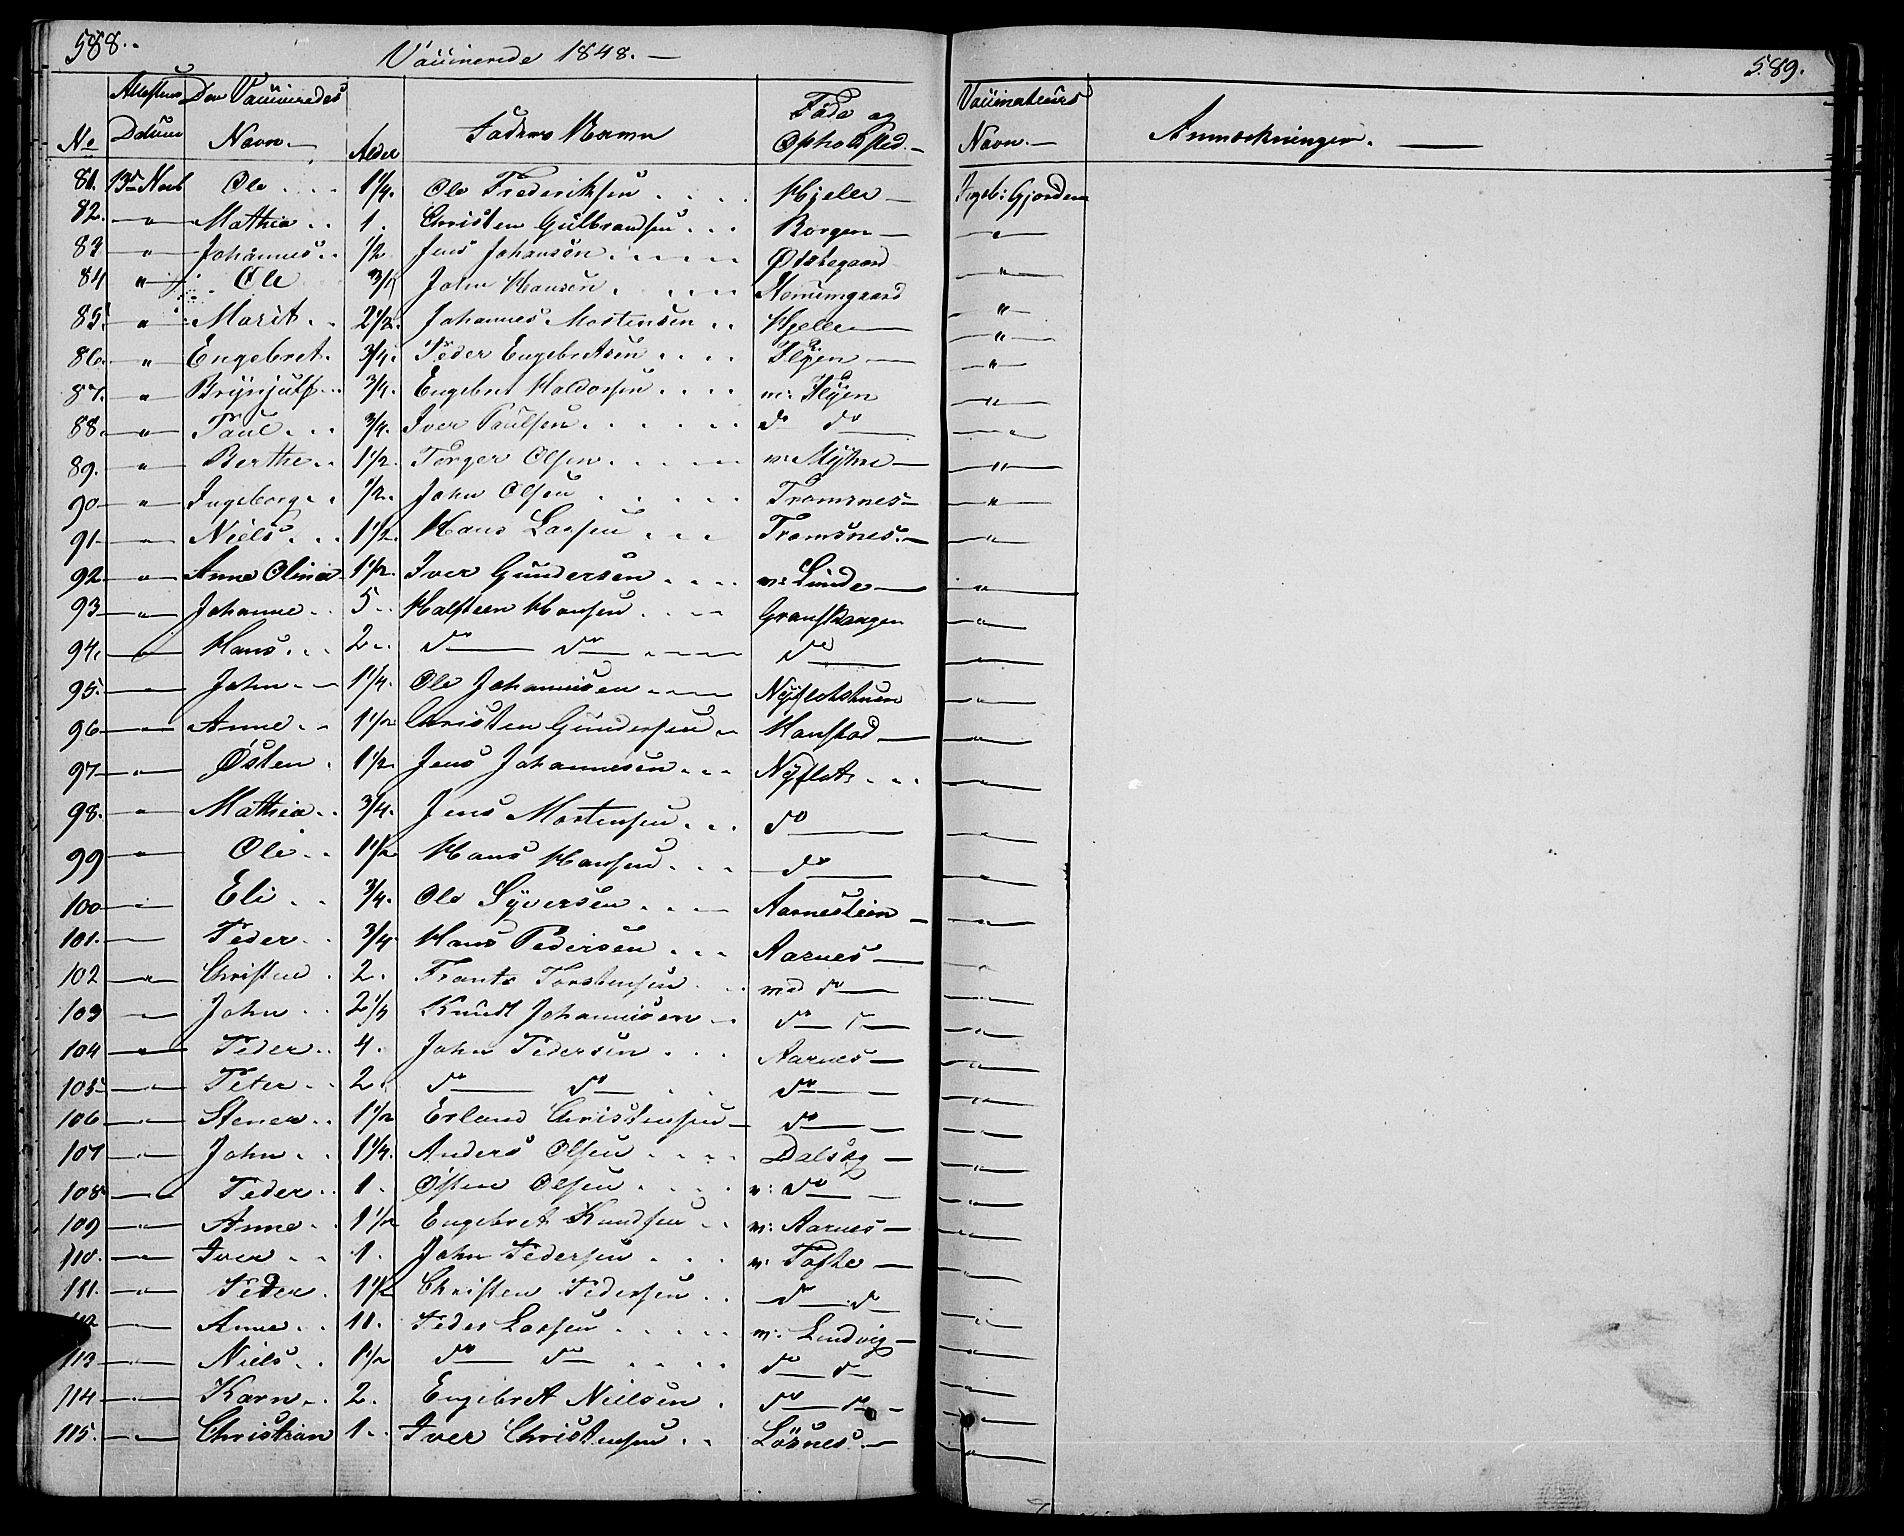 588.
Vaccinerede 1848. —
589.
No
Attestens Datum
Den Vaccineredes Navn.
Alder
Faderens Navn
Føde og Opholdsted. —
Vaccinateurs Navn. —
Anmærkninger. —
81. 13de Ole 1 1/4. Ole Frederiksen Hjelle — Gjorden
82. " Mathia 1. Christen Gulbrandsen Borgen — "
83 " Johannes 1/2 Jens Johansen "
84 " Ole John Hansen "
85. " Marit 2 1/2. Johannes Mortensen Hjelle "
86. " Engebret 3/4. Peder Engebretsen "
87. " Brynjulf 3/4. Engebret Haldorsen "
88. " Paul 3/4. Iver Paulsen do do "
89. " Berthe 1 1/2. Torger Olsen m: Myhre — "
90 " Ingeborg 1/2. John Olsen Tromsnes — "
91 " Niels 1 1/2. Hans Larsen Tromsnes. — "
92. " Anne Olina 1 1/2. Iver Gundersen m: Lunde — "
93 " Johanne 5 Halsteen Hansen "
94. " Hans 2 do do do "
95. " John 1 1/4. Ole Johannesen "
96 " Anne 1 1/2 Christen Gundersen Hanstad — "
97 " Østen 1 1/2 Jens Johannesen Nyflot "
98. " Mathia 3/4. Jens Mortensen do "
99 " Ole 1 1/2 Hans Hansen do "
100 " Eli 3/4. Ole Syversen Aarnesteien — "
101. Peder 3/4 Hans Pedersen Aarnes — "
102 " Christen 2. Frants Torstensen ved do "
103 " John Knudt Johannesen do do "
104 " Peder 4. John Pedersen Aarnes — "
105 " Peter 2. do do do "
106 " Stener 1 1/2 Erland Christensen do "
107 " John 1 1/4. Anders Olsen "
108 " Peder 1. Østen Olsen do "
109 " Anne 1 1/2 Engebret Knudsen m: Aarnes — "
110. " Iver 1. John Pedersen m: Tofte — "
111. " Peder 1 1/2 Christen Pedersen do do "
112 " Anne 11. Peder Larsen m: Lundvig — "
113 " Niels 1 1/2 do do do do "
114 " Karn 2. Engebret Nielsen do do "
115. " Christian 1. Iver Christensen Løsnes. — "